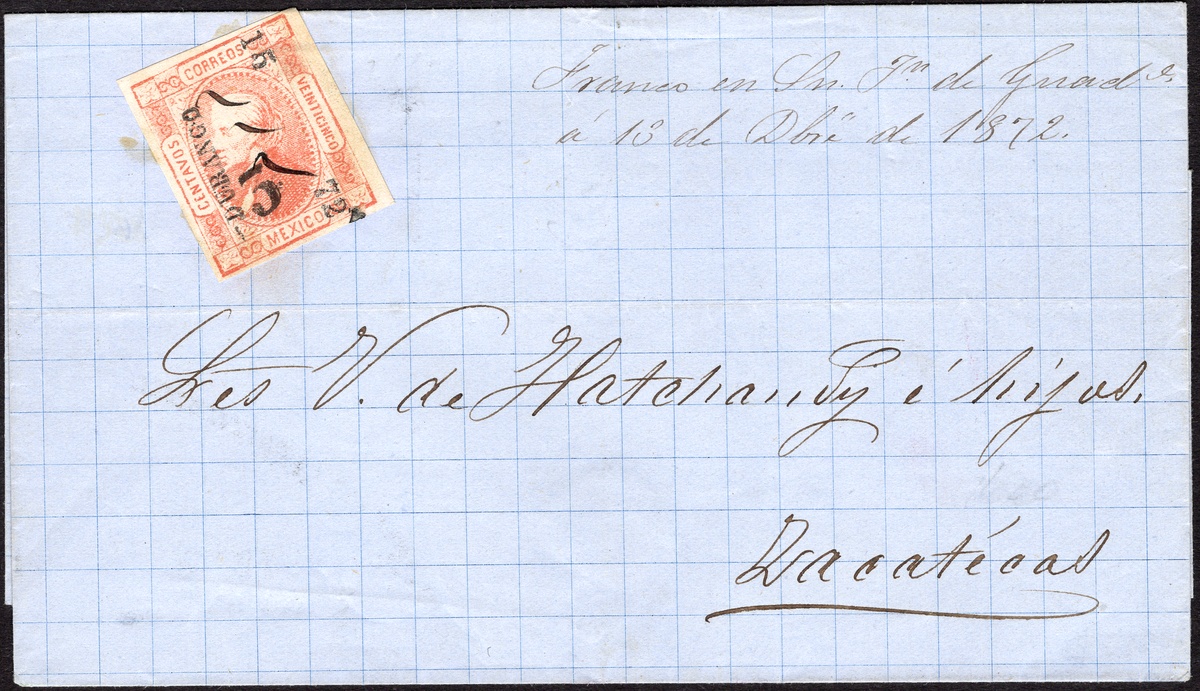 CORREOS
VEINTICINCO
CENTAVOS
MEXICO
15
72
DURANGO
Franco en Sn. Jn de Guad
á 13 de Dbrē de 1872.
V. de Hatchandy é hijos.
Zacatécas